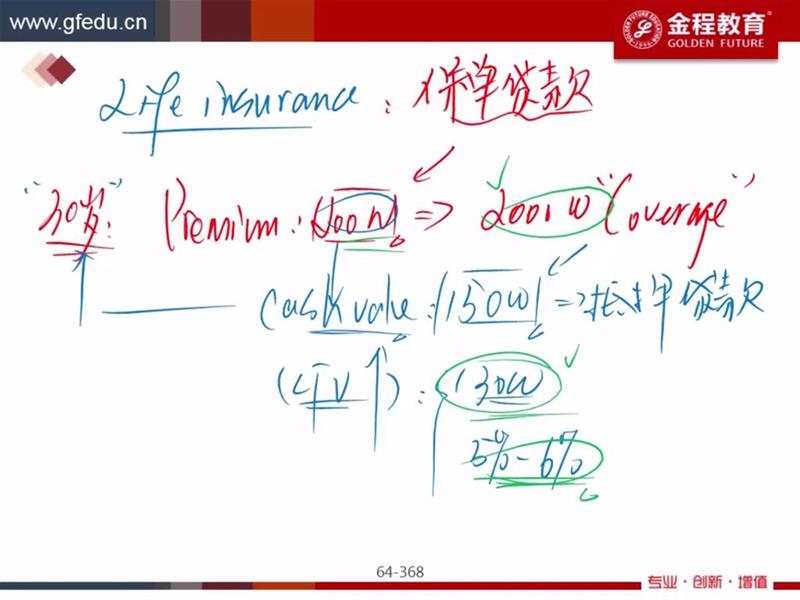 www.gfedu.cn
金程教育®
GOLDEN FUTURE
Life insurance : 保单贷款
"30岁": Premium: 200W => 2000W "Coverage"
Cash value: 150W => 抵押贷款
(LTV↑): 130W
5%-6%
64-368
专业·创新·增值